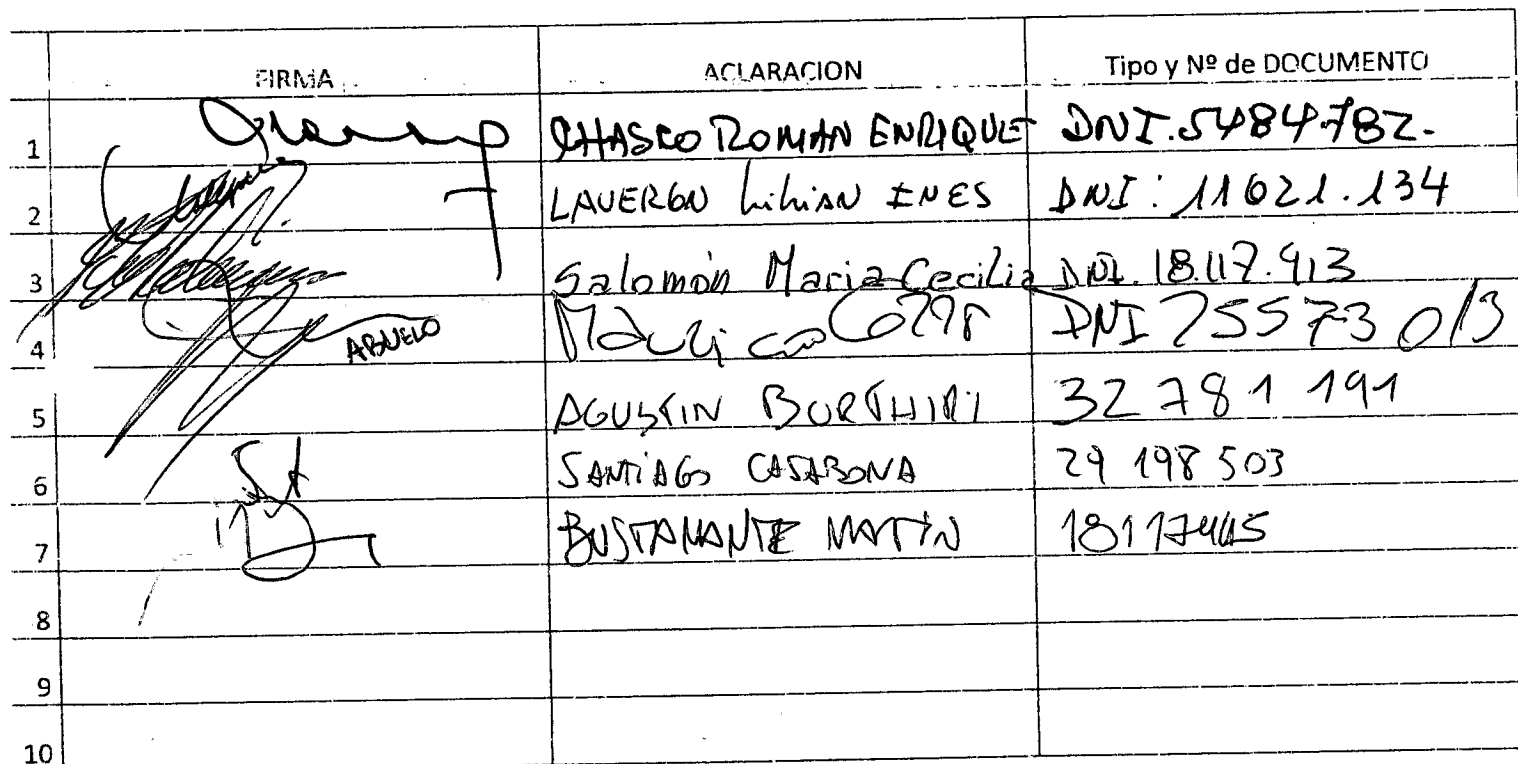 FIRMA ACLARACION Tipo y Nº de DOCUMENTO
1 CHASCO ROMAN ENRIQUE DNI. 5484782-
2 LAVERGN Lilian INES DNI: 11621.134
3 Salomón Maria Cecilia DNI. 18.117.913
4 ABUELO Mauricio DNI 25573013
5 AGUSTIN 32 781 191
6 SANTIAGO CASABONA 29 198 503
7 BUSTAMANTE MARTIN 18117445
8
9
10